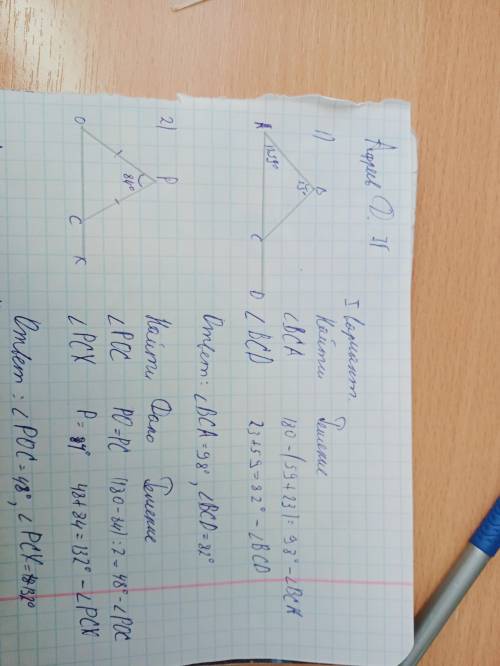 Адриев Д. 31
I вариант.
1)
B
23°
A
59°
C
D
Найти
Решение
∠BCA
180-(59+23)=98°-∠BCA
∠BCD
23+59=82°-∠BCD
Ответ: ∠BCA=98°, ∠BCD=82°
2)
P
84°
O
C
K
Найти Дано Решение
∠POC PO=PC (180-84):2=48°-∠POC
∠PCK P=84° 48+84=132°-∠PCK
Ответ: ∠POC=48°, ∠PCK=132°